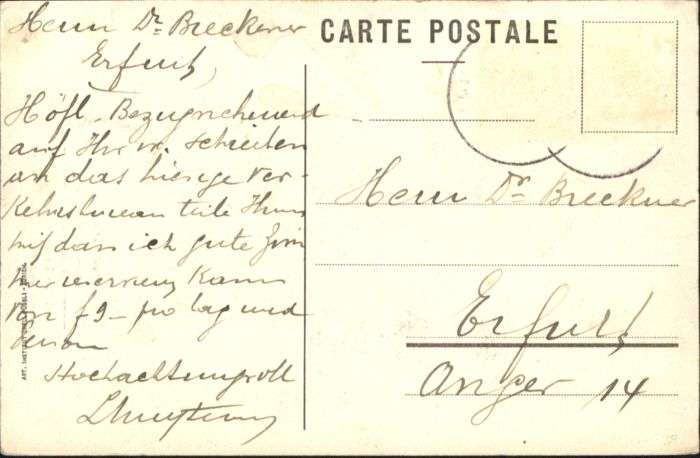 Herrn Dr Breckner
Erfurt,
Höfl. Bezugnehmend
auf Ihr w. Schreiben
an das hiesige Ver-
kehrsbureau teile Ihnen
mit dass ich gute Zim
mer reserviren kann
von f 9 – pro tag und
person
Hochachtungsvoll
CARTE POSTALE
Herrn Dr Breckner
Erfurt
Anger 14